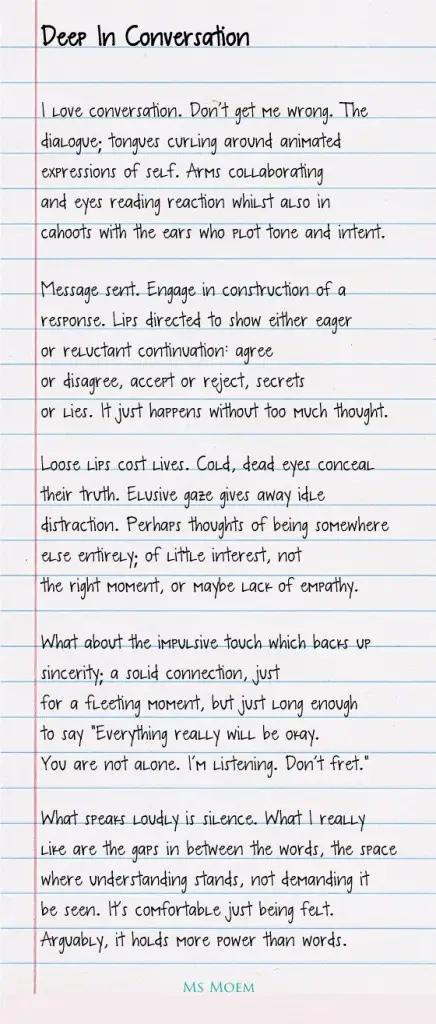 Deep In Conversation
I love conversation. Don't get me wrong. The
dialogue; tongues curling around animated
expressions of self. Arms collaborating
and eyes reading reaction whilst also in
cahoots with the ears who plot tone and intent.
Message sent. Engage in construction of a
response. Lips directed to show either eager
or reluctant continuation: agree
or disagree, accept or reject, secrets
or lies. It just happens without too much thought.
Loose lips cost lives. Cold, dead eyes conceal
their truth. Elusive gaze gives away idle
distraction. Perhaps thoughts of being somewhere
else entirely; of little interest, not
the right moment, or maybe lack of empathy.
What about the impulsive touch which backs up
sincerity; a solid connection, just
for a fleeting moment, but just long enough
to say "Everything really will be okay.
You are not alone. I'm listening. Don't fret."
What speaks loudly is silence. What I really
like are the gaps in between the words, the space
where understanding stands, not demanding it
be seen. It's comfortable just being felt.
Arguably, it holds more power than words.
Ms Moem